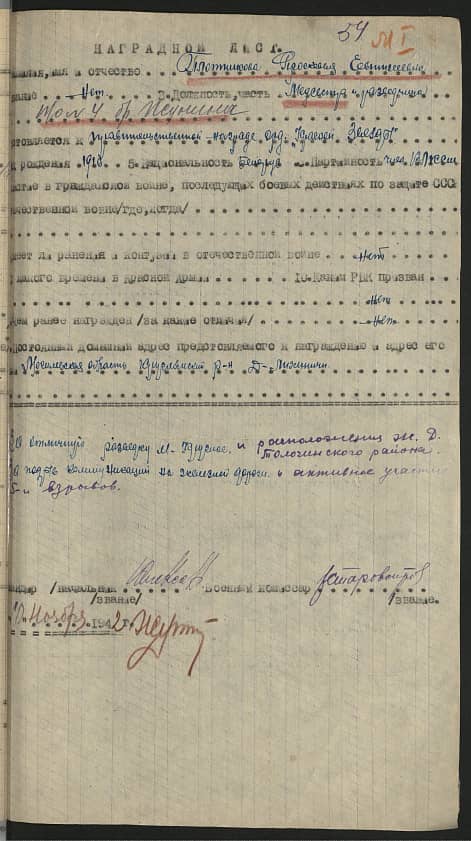 54 М I
НАГРАДНОЙ ЛИСТ.
имя и отчество Плотникова Феодосия Евтихеевна
Нет 3. Должность, часть Медсестра и разведчица
бр. Жунина
к правительственной награде орд. Красной Звезды
рождения 5. Национальность Белорус Партийность член ВЛКСМ
в гражданской войне, последующих боевых действиях по защите СССР
отечественной войне /где, когда/
ли ранения и контузии в отечественной войне Нет
какого времени в Красной Армии 10. Каким РВК призван
Нет
ранее награжден /за какие отличия/ Нет
Постоянный домашний адрес представляемого к награждению и адрес его
Могилевская область Круглянский р-н Д-
За отличную разведку м- Круглое и расположения ж. д. Толочинского района.
За подрыв коммуникаций на железной дороге и активное участие
5-и взрывов.
/начальник Военный комиссар
/звание/ /звание.
Ноября 1942 г.